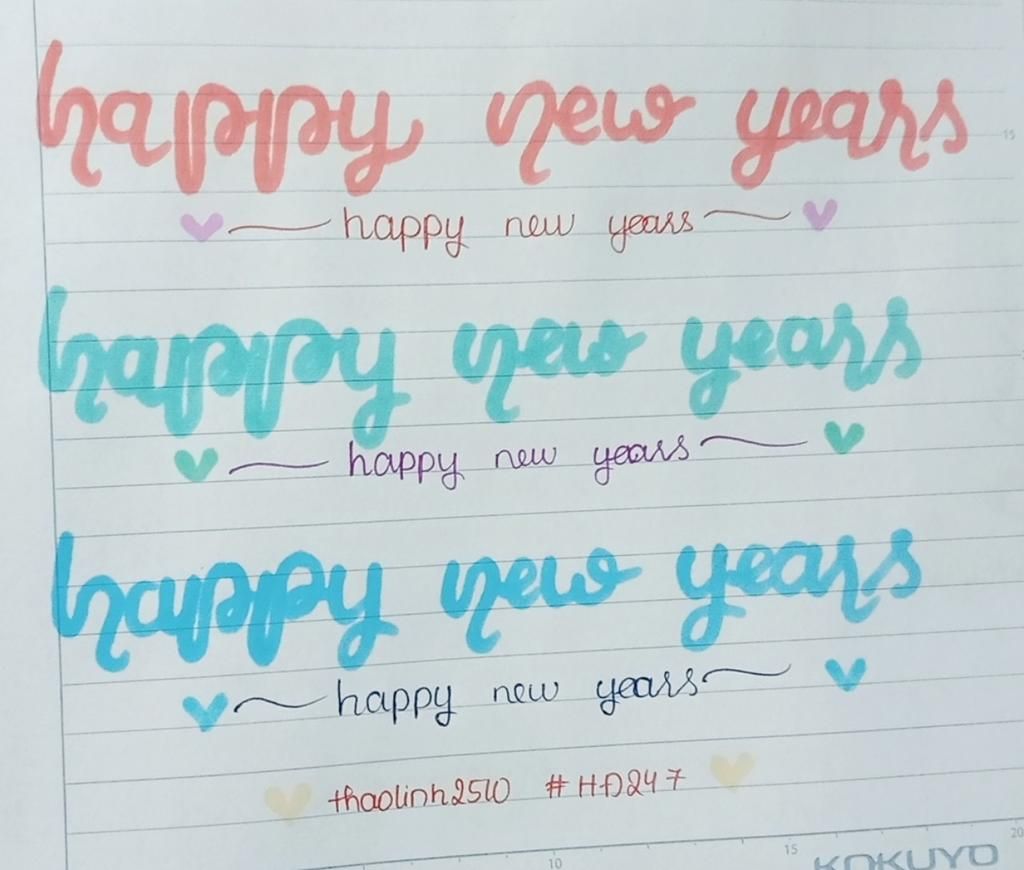 happy new years
15
happy new years
happy new years
happy new years
happy new years
happy new years
thaolinh2510 #HĐ247
10 15 20
KOKUYO